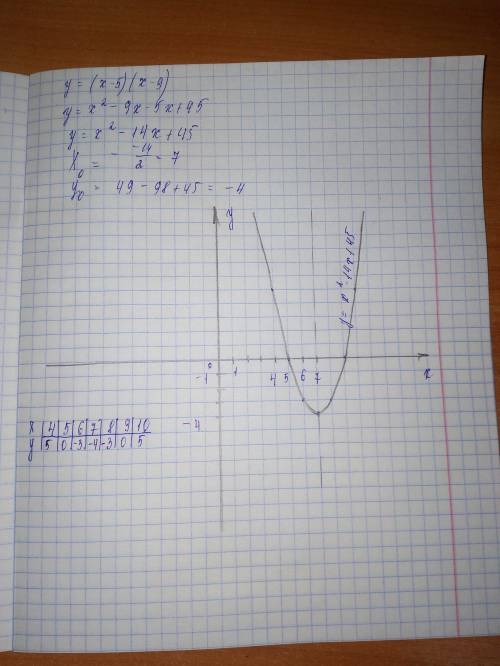 y = (x-5)(x-9)
y = x² - 9x - 5x + 45
y = x² - 14x + 45
x₀ = - -14/2 = 7
y₀ = 49 - 98 + 45 = -4
y
y = x² - 14x + 45
0 1 4 5 6 7 x
-1
-4
x 4 5 6 7 8 9 10
y 5 0 -3 -4 -3 0 5